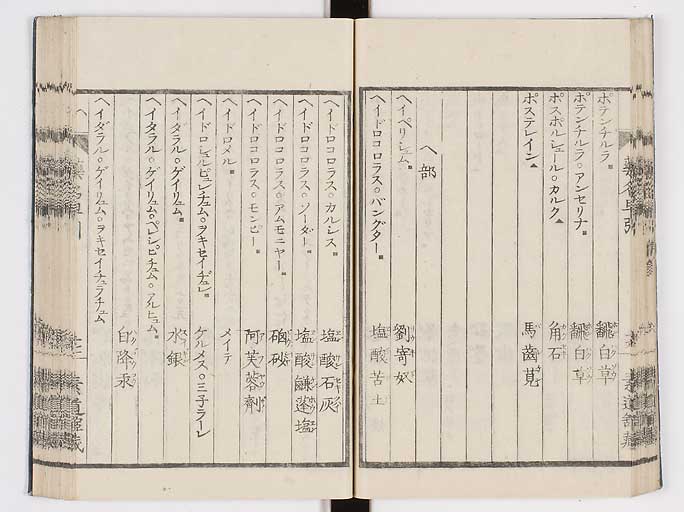 ポテンチルラ 飜白草
ポテンチルラ。アンセリナ 飜白草
ポスポルシュール。カルク 角石
ポステレイン 馬齒莧
ヘ部
ヘイペリシュム 劉寄奴
ヘイドロコロラス。バングター 塩酸苦土
ヘイドロコロラス。カルシス 塩酸石灰
ヘイドロコロラス。ソーダー 塩酸鹻蓬塩
ヘイドロコロラス。アムモニヤー 硇砂
ヘイドロコロラス。モンヒー 阿芙蓉劑
ヘイドロメル メイテ
ヘイドロシュルピュレチュム。ヲキセイヂュレ ケルメス。三子ラーレ
ヘイダラル。ゲイリュム 水銀
ヘイタラル。ゲイリュム。ペレシピチュム。アルヒュム
白降汞
ヘイダラル。ゲイリュム。ヲキセイチュラチュム